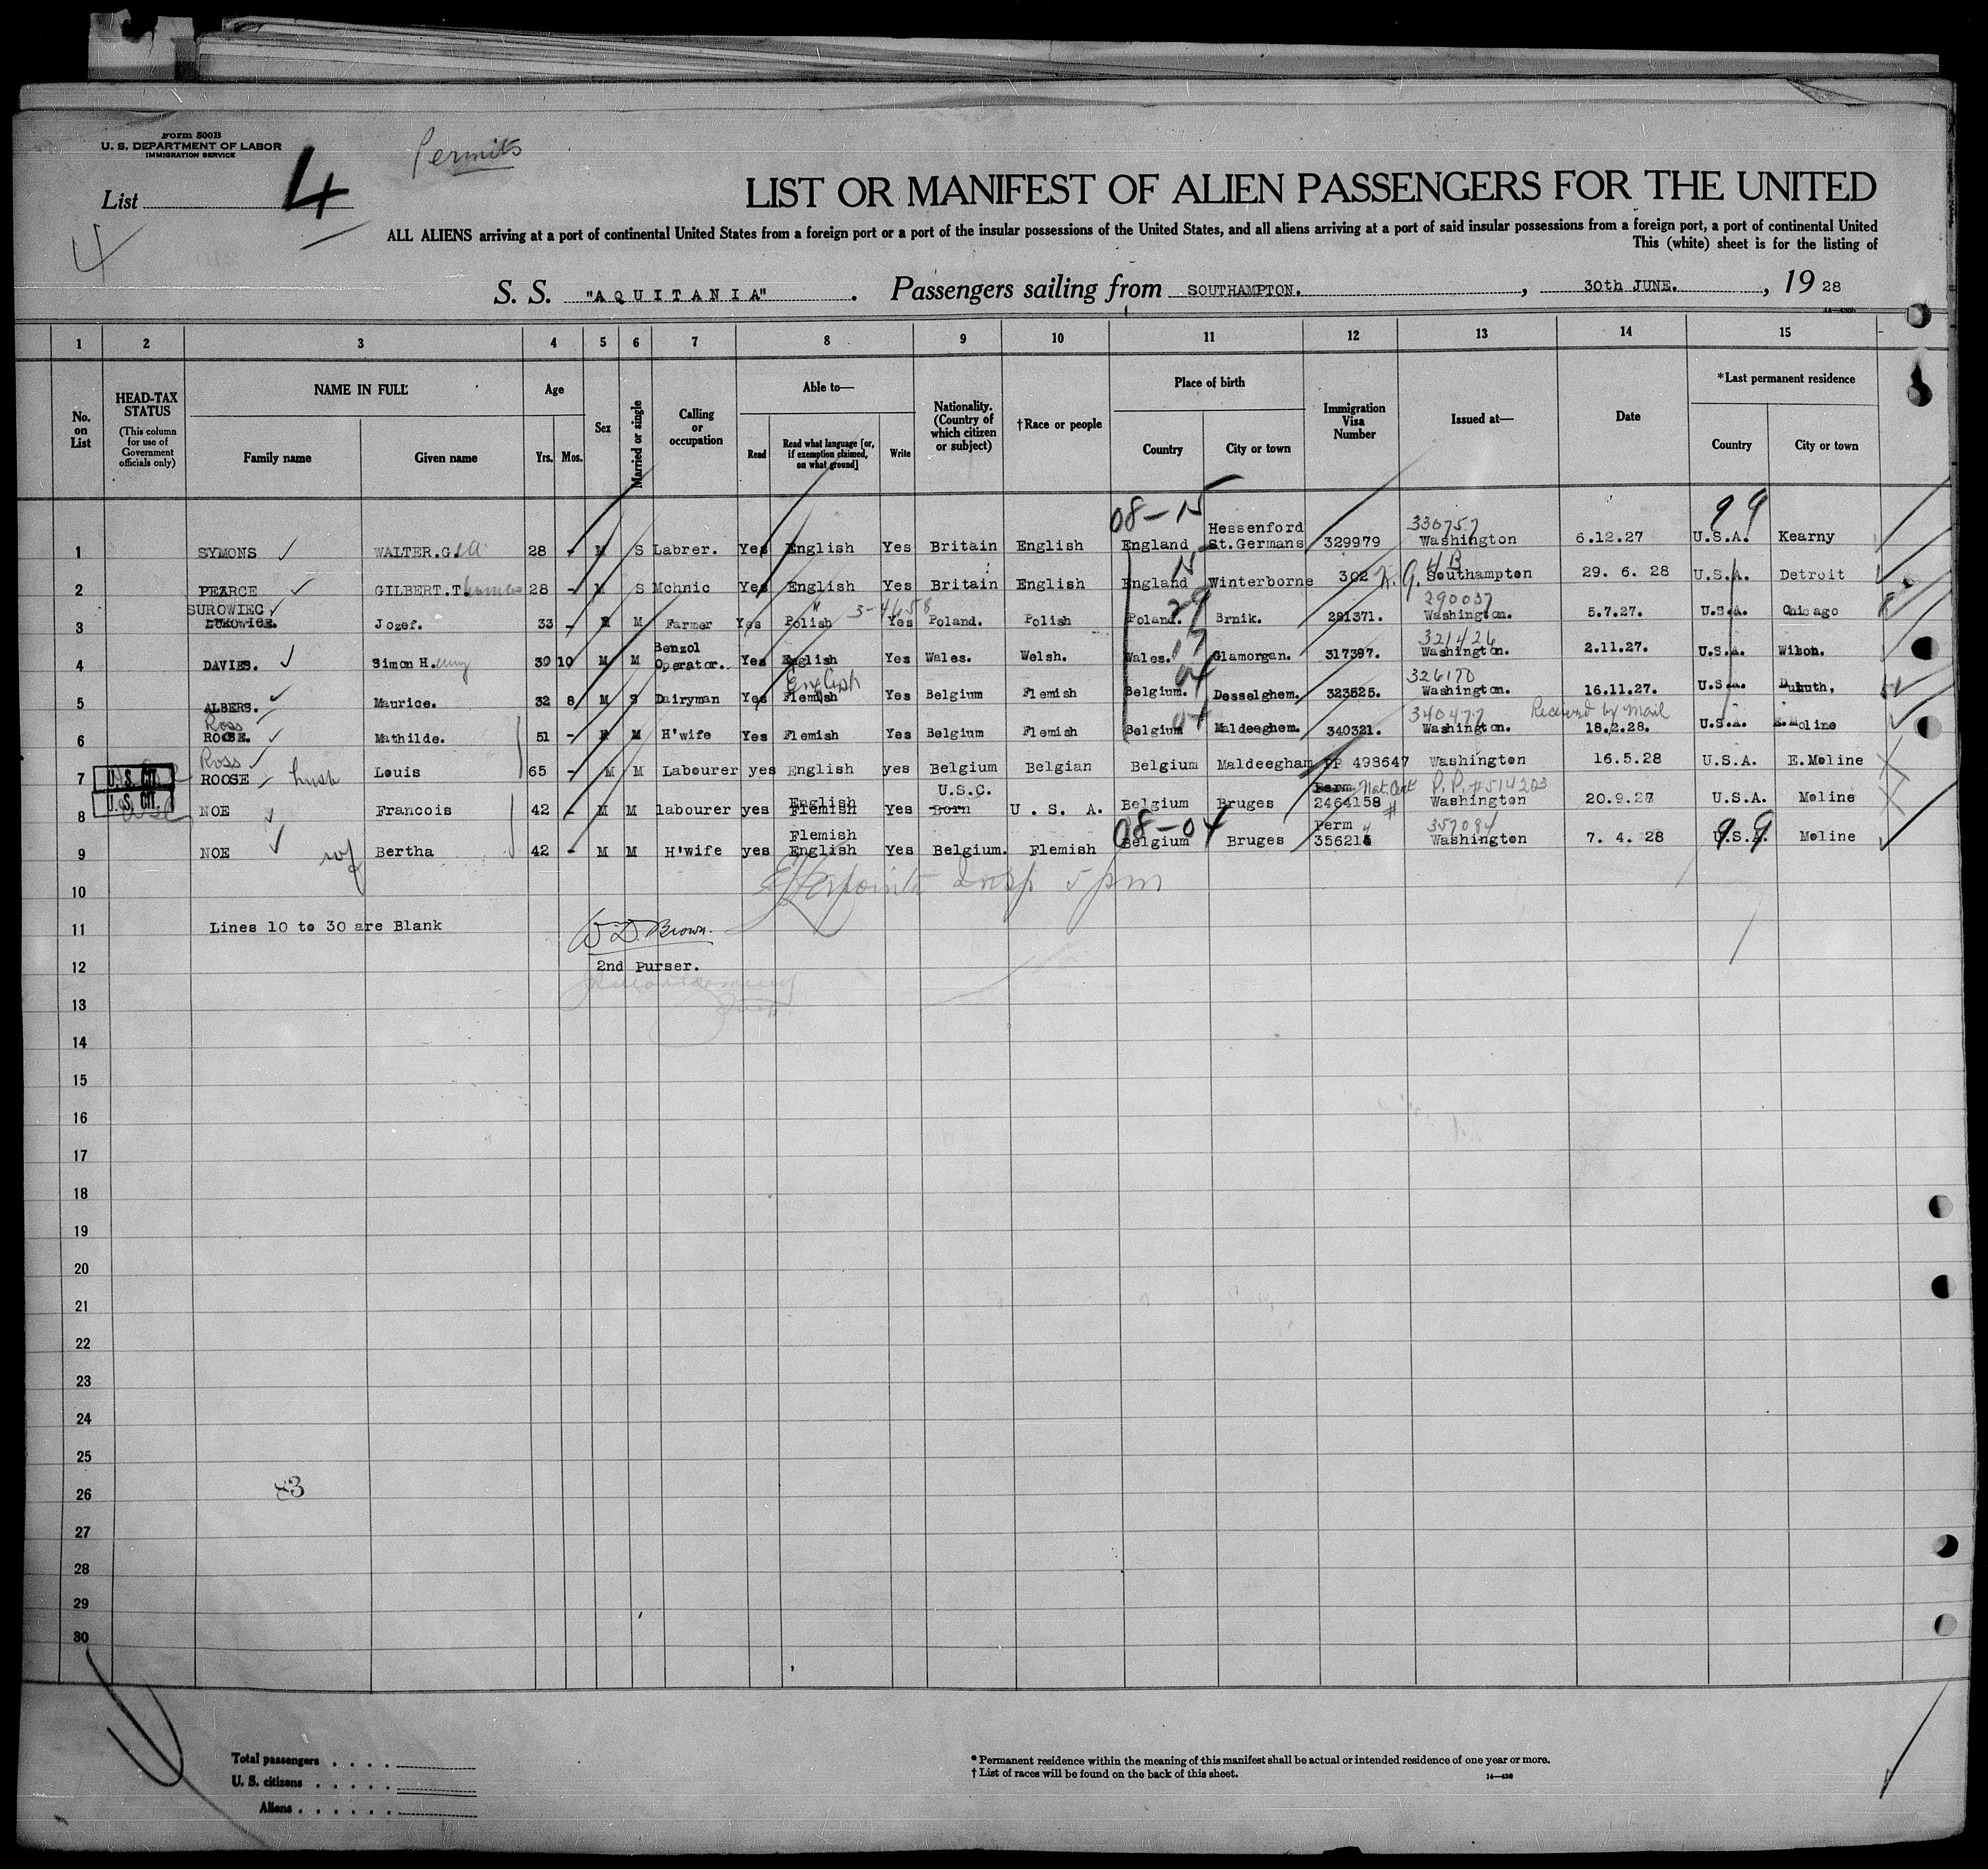 Form 500B
U. S. DEPARTMENT OF LABOR
IMMIGRATION SERVICE
Permits
List 4
4
LIST OR MANIFEST OF ALIEN PASSENGERS FOR THE UNITED
ALL ALIENS arriving at a port of continental United States from a foreign port or a port of the insular possessions of the United States, and all aliens arriving at a port of said insular possessions from a foreign port, a port of continental United
This (white) sheet is for the listing of
S. S. "AQUITANIA". Passengers sailing from SOUTHAMPTON., 30th JUNE., 19 28
1 2 3 4 5 6 7 8 9 10 11 12 13 14 15
No. on List
HEAD-TAX STATUS (This column for use of Government officials only)
NAME IN FULL Family name Given name
Age Yrs. Mos.
Sex
Married or single
Calling or occupation
Able to— Read Read what language [or, if exemption claimed, on what ground] Write
Nationality. (Country of which citizen or subject)
†Race or people
Place of birth Country City or town
Immigration Visa Number
Issued at—
Date
*Last permanent residence Country City or town
08-15 99
Hessenford 330757
1 SYMONS WALTER.G. 28 - M S Labrer. Yes English Yes Britain English England St.Germans 329979 Washington 6.12.27 U.S.A. Kearny
2 PEARCE GILBERT.Thomas 28 - M S Mchnic Yes English Yes Britain English England Winterborne 302 Southampton 29. 6. 28 U.S.A. Detroit
SUROWIEC, 3-4658 29 290037
3 Jozef. 33 - M M Farmer Yes Polish Yes Poland. Polish Poland. Brnik. 281371. Washington. 5.7.27. U.S.A. Chicago
Benzol 321426
4 DAVIES. Simon H. 30 10 M M Operator. Yes English Yes Wales. Welsh. Wales. Glamorgan. 317397. Washington. 2.11.27. U.S.A. Wilson.
English 04 326170
5 ALBERS. Maurice. 32 8 M S Dairyman Yes Flemish Yes Belgium Flemish Belgium. Desselghem. 323525. Washington. 16.11.27. U.S.A. Duluth,
Ross 04 340477 Received by mail
6 ROOSE. Mathilde. 51 - F M H'wife Yes Flemish Yes Belgium Flemish Belgium Maldeeghem. 340321. Washington. 18.2.28. U.S.A. E.Moline
Ross
7 U.S. CIT. ROOSE husb Louis 65 - M M Labourer yes English yes Belgium Belgian Belgium Maldeegham PP 498647 Washington 16.5.28 U.S.A. E.Moline
English U.S.C. Perm Nat Cert P.P. #514203
8 U.S. CIT. NOE Francois 42 - M M labourer yes Flemish Yes Born U. S. A. Belgium Bruges 2464158 # Washington 20.9.27 U.S.A. Moline
Flemish 08-04 Perm 357084 99
9 NOE wf Bertha 42 - M M H'wife yes English Yes Belgium. Flemish Belgium Bruges 356215 Washington 7. 4. 28 U.S.A. Moline
10
Insp 5 pm
11 Lines 10 to 30 are Blank
W D. Brown.
12 2nd Purser.
13
14
15
16
17
18
19
20
21
22
23
24
25
26
27
28
29
30
Total passengers . . . .
U. S. citizens . . . . .
Aliens . . . . . .
* Permanent residence within the meaning of this manifest shall be actual or intended residence of one year or more.
† List of races will be found on the back of this sheet.
14—430